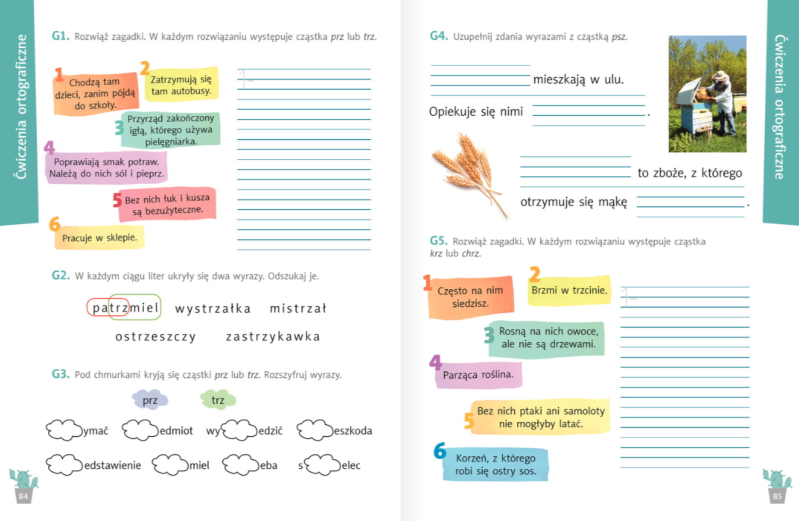 Ćwiczenia ortograficzne
G1. Rozwiąż zagadki. W każdym rozwiązaniu występuje cząstka prz lub trz.
1 Chodzą tam
dzieci, zanim pójdą
do szkoły.
2 Zatrzymują się
tam autobusy.
3 Przyrząd zakończony
igłą, którego używa
pielęgniarka.
4 Poprawiają smak potraw.
Należą do nich sól i pieprz.
5 Bez nich łuk i kusza
są bezużyteczne.
6 Pracuje w sklepie.
1-
G2. W każdym ciągu liter ukryły się dwa wyrazy. Odszukaj je.
patrzmiel wystrzałka mistrzał
ostrzeszczy zastrzykawka
G3. Pod chmurkami kryją się cząstki prz lub trz. Rozszyfruj wyrazy.
prz trz
ymać edmiot wy edzić eszkoda
edstawienie miel eba s elec
84
G4. Uzupełnij zdania wyrazami z cząstką psz.
mieszkają w ulu.
Opiekuje się nimi .
to zboże, z którego
otrzymuje się mąkę .
G5. Rozwiąż zagadki. W każdym rozwiązaniu występuje cząstka
krz lub chrz.
1 Często na nim
siedzisz.
2 Brzmi w trzcinie.
3 Rosną na nich owoce,
ale nie są drzewami.
4 Parząca roślina.
5 Bez nich ptaki ani samoloty
nie mogłyby latać.
6 Korzeń, z którego
robi się ostry sos.
1-
Ćwiczenia ortograficzne
85